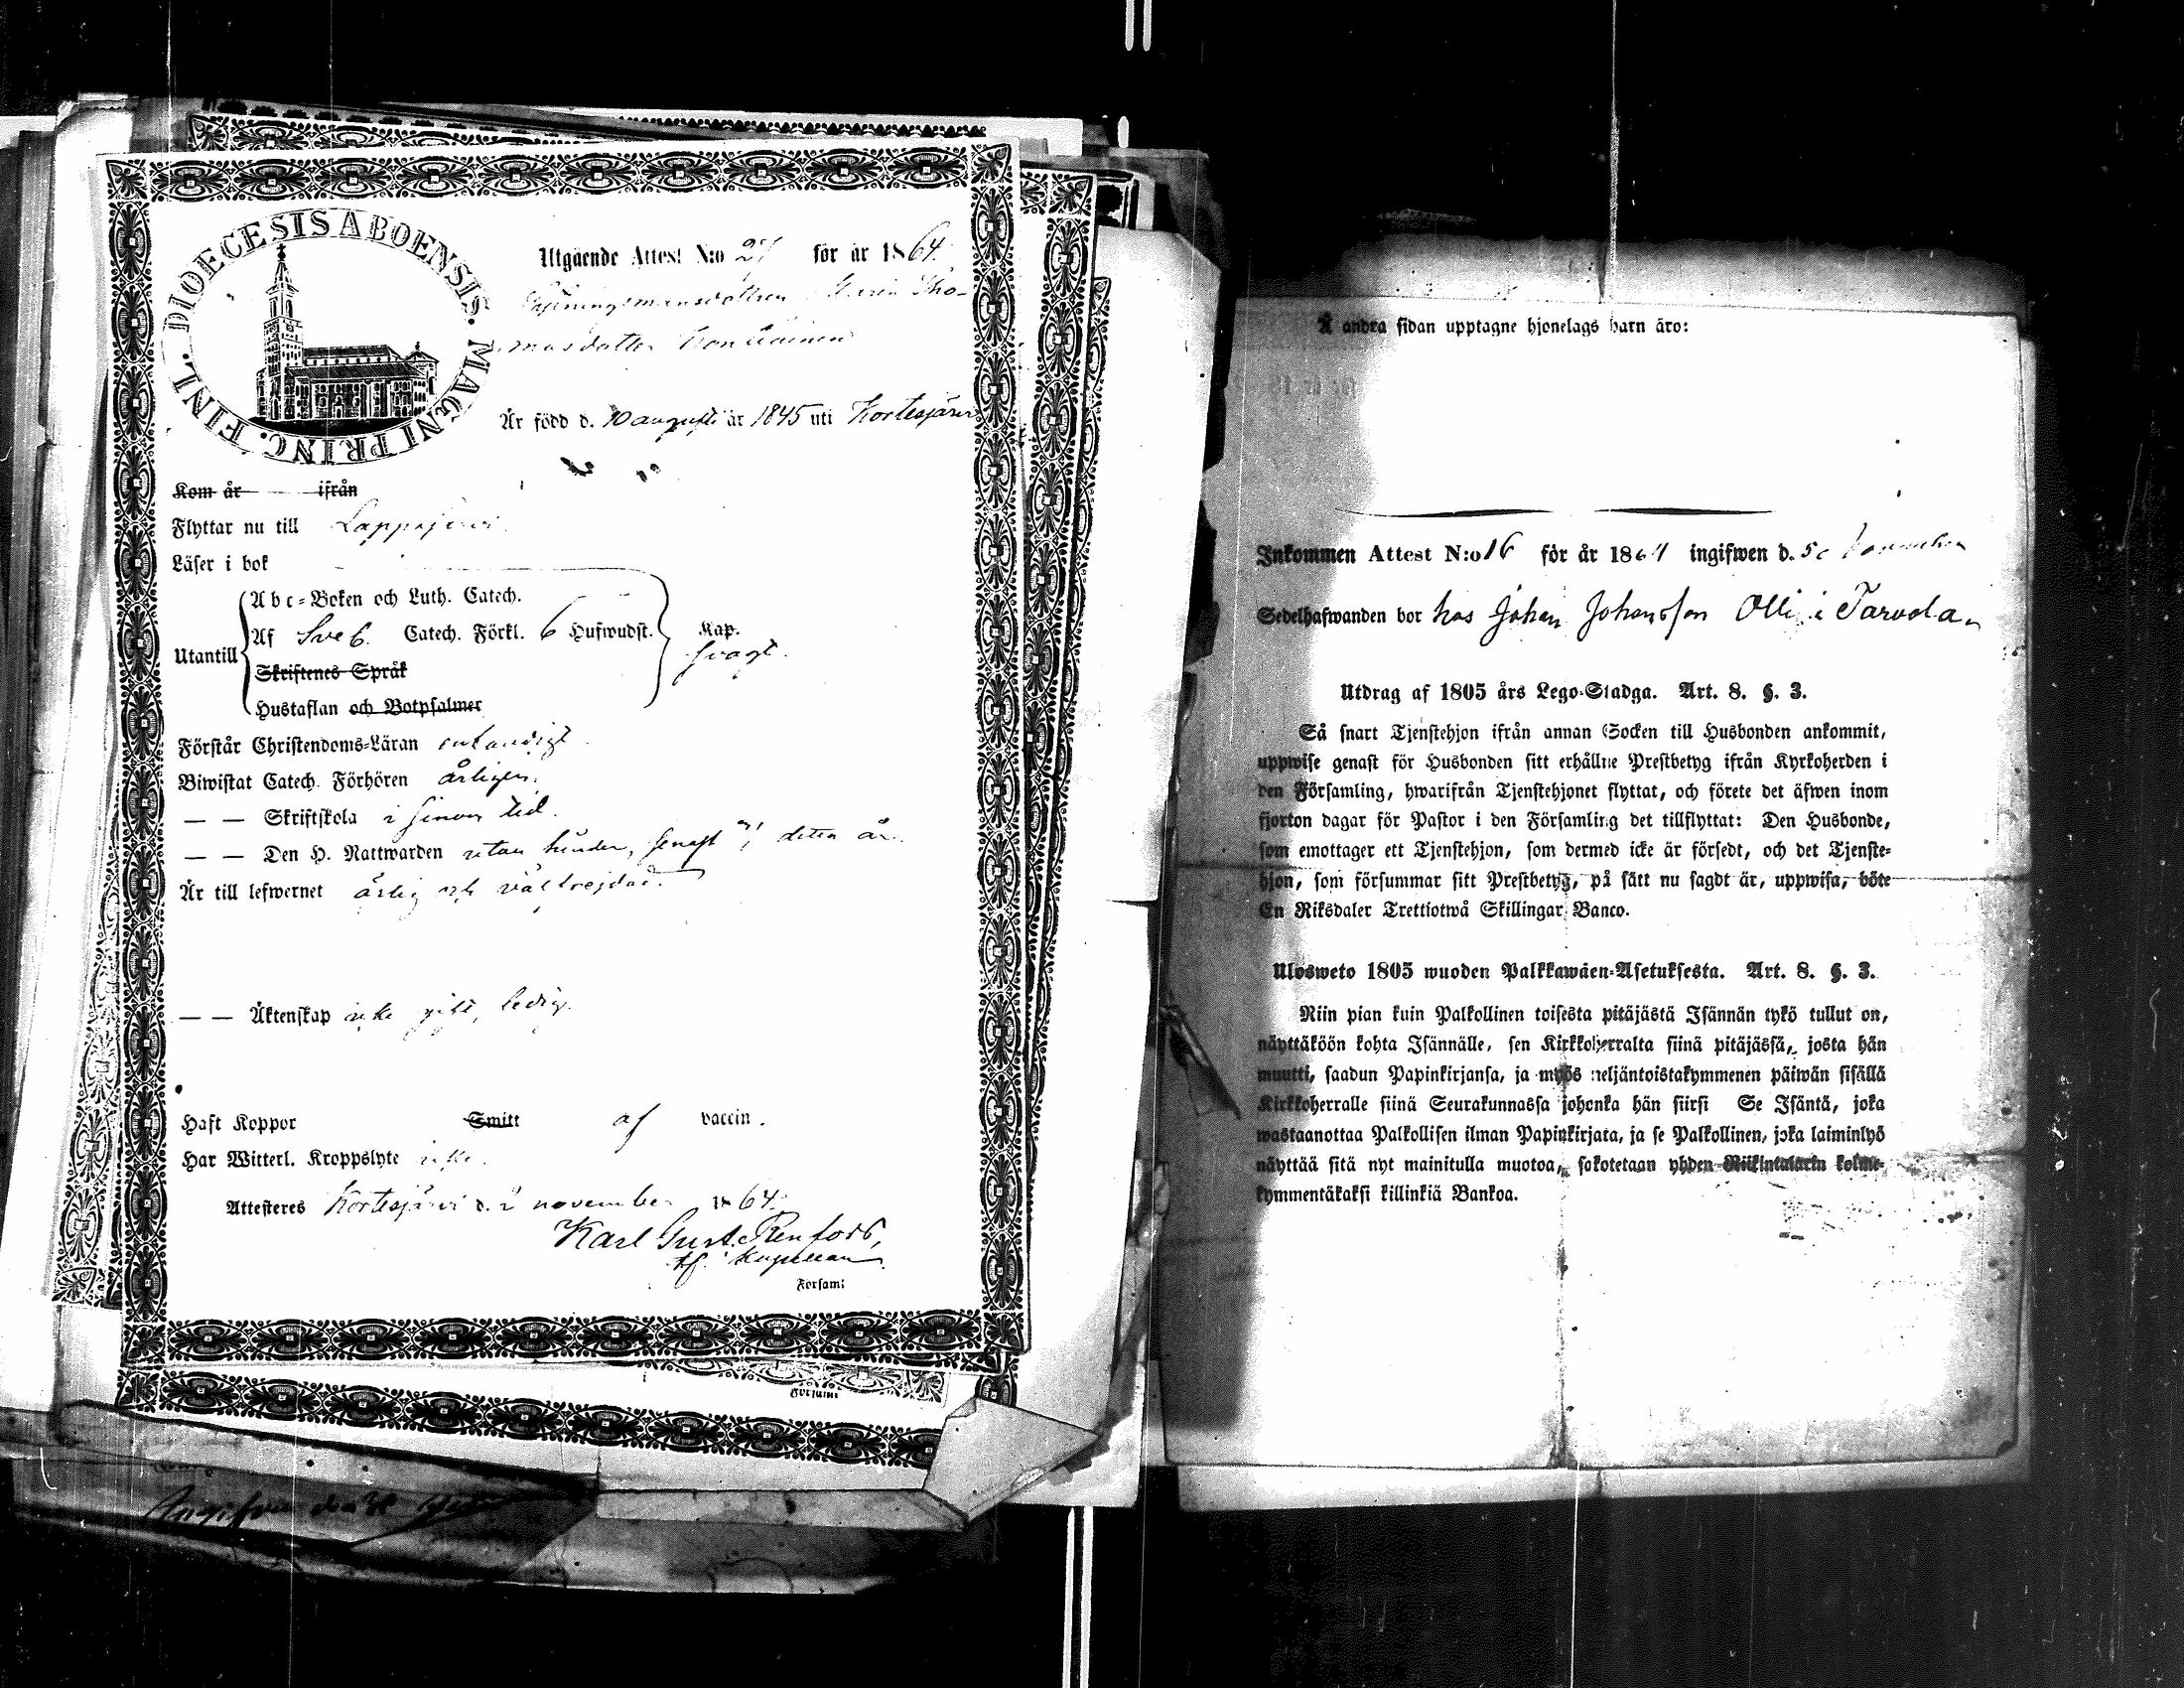 DIOECESIS ABOENSIS. MAGNI PRINC. FINL.
Utgående Attest N:o 27 för år 1864.
Tho-
masdotter
Är född d. 10 augusti år 1845 uti Kortesjärvi
Kom år ifrån
Flyttar nu till Lappajärvi
Läser i bok
Utantill
Abc-Boken och Luth. Catech.
Af Sveb. Catech. Förkl. 6 Hufwudst.
Kap.
svagt.
Skriftenes Språk
Hustaflan och Botpsalmer
Förstår Christendoms-Läran
Biwistat Catech. Förhören årligen.
— — Skriftskola i sinom tid.
— — Den H. Nattwarden utan hinder, senast detta år.
Är till lefwernet ärlig och välfrejdad.
— — Äktenskap icke gift, ledig.
Haft Koppor Smitt af vaccin.
Har Witterl. Kroppslyte icke.
Attesteres Kortesjärvi d. 2 november 1864.
Karl Gust. Renfors,
tf. Kapellan
Församl
Församl
Å andra sidan upptagne hjonelags barn äro:
Inkommen Attest N:o 16 för år 1864 ingifwen d.
Sedelhafwanden bor hos Johan Johansson Olli i Tarvola
Utdrag af 1805 års Lego-Stadga. Art. 8. §. 3.
Så snart Tjenstehjon ifrån annan Socken till Husbonden ankommit,
uppwise genast för Husbonden sitt erhållne Prestbetyg ifrån Kyrkoherden i
den Församling, hwarifrån Tjenstehjonet flyttat, och förete det äfwen inom
fjorton dagar för Pastor i den Församling det tillflyttat: Den Husbonde,
som emottager ett Tjenstehjon, som dermed icke är försedt, och det Tjenste-
hjon, som försummar sitt Prestbetyg, på sätt nu sagdt är, uppwisa, böte
En Riksdaler Trettiotwå Skillingar Banco.
Ulosweto 1805 wuoden Palkkawäen-Asetuksesta. Art. 8. §. 3.
Niin pian kuin Palkollinen toisesta pitäjästä Isännän tykö tullut on,
näyttäköön kohta Isännälle, sen Kirkkoherralta siinä pitäjässä, josta hän
muutti, saadun Papinkirjansa, ja myös neljäntoistakymmenen päiwän sisällä
Kirkkoherralle siinä Seurakunnassa johonka hän siirsi Se Isäntä, joka
wastaanottaa Palkollisen ilman Papinkirjata, ja se Palkollinen, joka laiminlyö
näyttää sitä nyt mainitulla muotoa, sakotetaan yhden Riikintalarin kolme-
kymmentäkaksi killinkiä Bankoa.